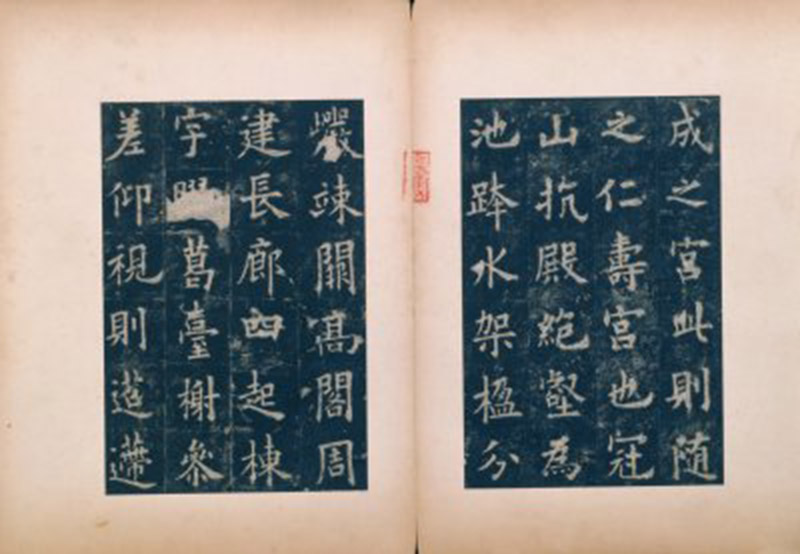 成之宮此則随
之仁壽宮也冠
山抗殿絕壑為
池跨水架楹分
巖竦闕高閣周
建長廊四起棟
宇葛臺榭參
差仰視則迢遰